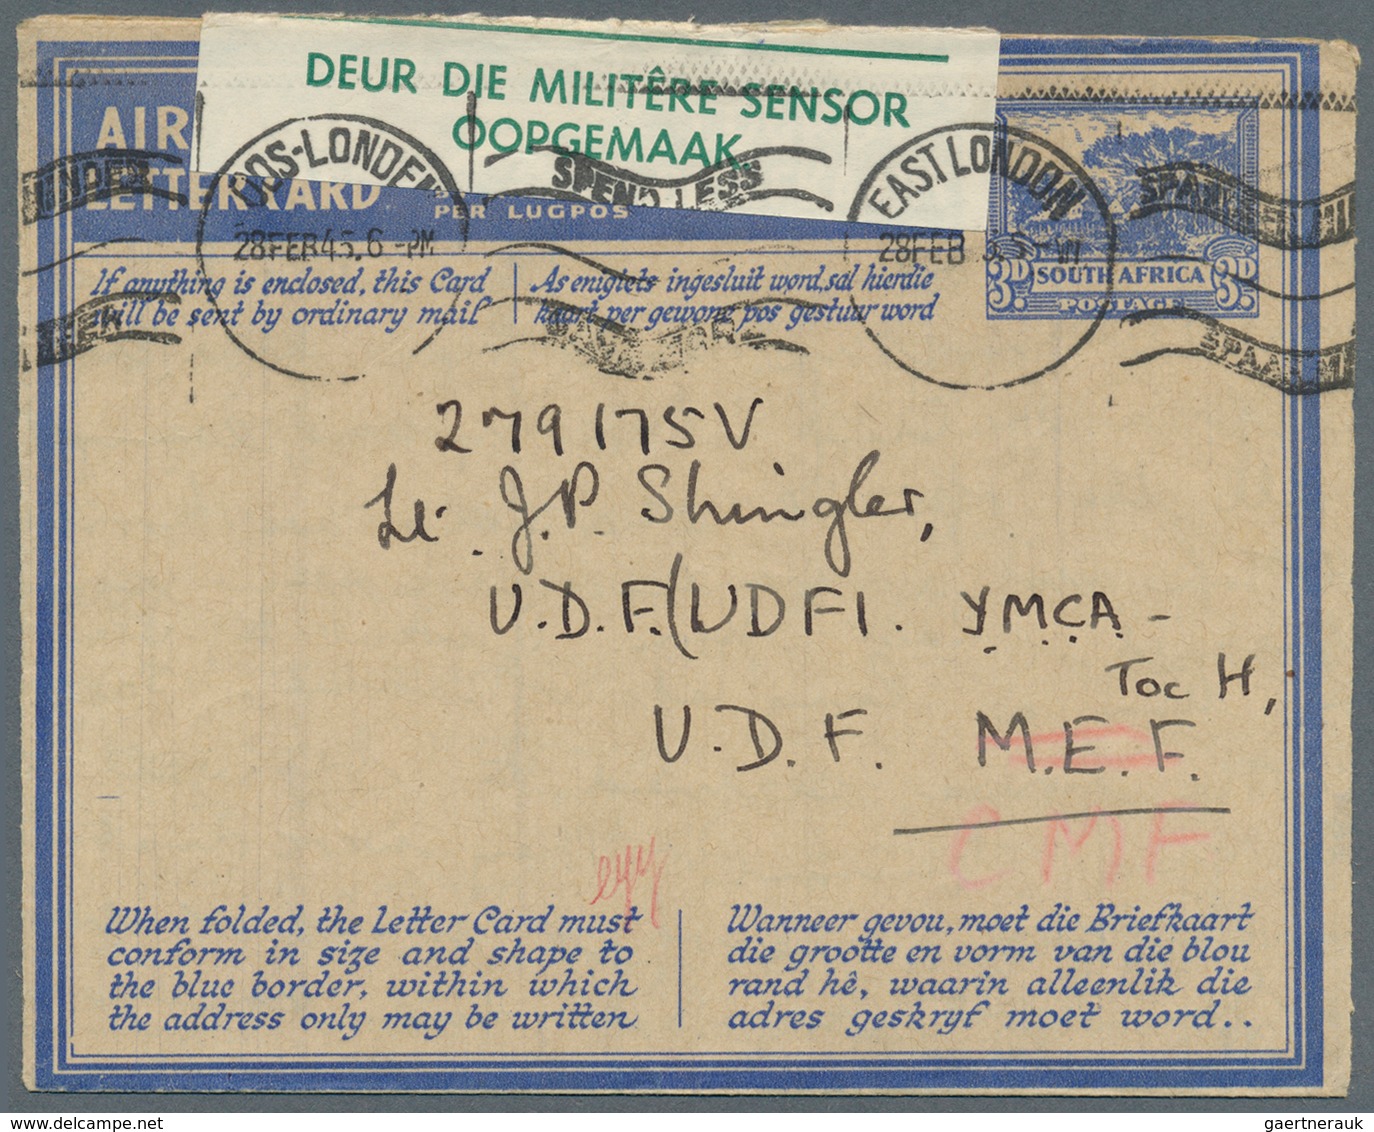 DEUR DIE MILITÊRE SENSOR
OOPGEMAAK
AIR
LETTER CARD
PER LUGPOS
OOS-LONDEN
28 FEB 45. 6 -PM
SPEND LESS
EAST LONDON
28 FEB
SOUTH AFRICA
3D. 3D.
POSTAGE
If anything is enclosed, this Card
will be sent by ordinary mail
As enigiets ingesluit word, sal hierdie
kaart per gewone pos gestuur word
279175V
Lt. J.P. Shingler,
U.D.F. (UDFI. Y.M.C.A. -
Toc H,
U.D.F. M.E.F.
CMF
When folded, the Letter Card must
conform in size and shape to
the blue border, within which
the address only may be written
Wanneer gevou, moet die Briefkaart
die grootte en vorm van die blou
rand hê, waarin alleenlik die
adres geskryf moet word..
gaertnerauk
delcampe.net